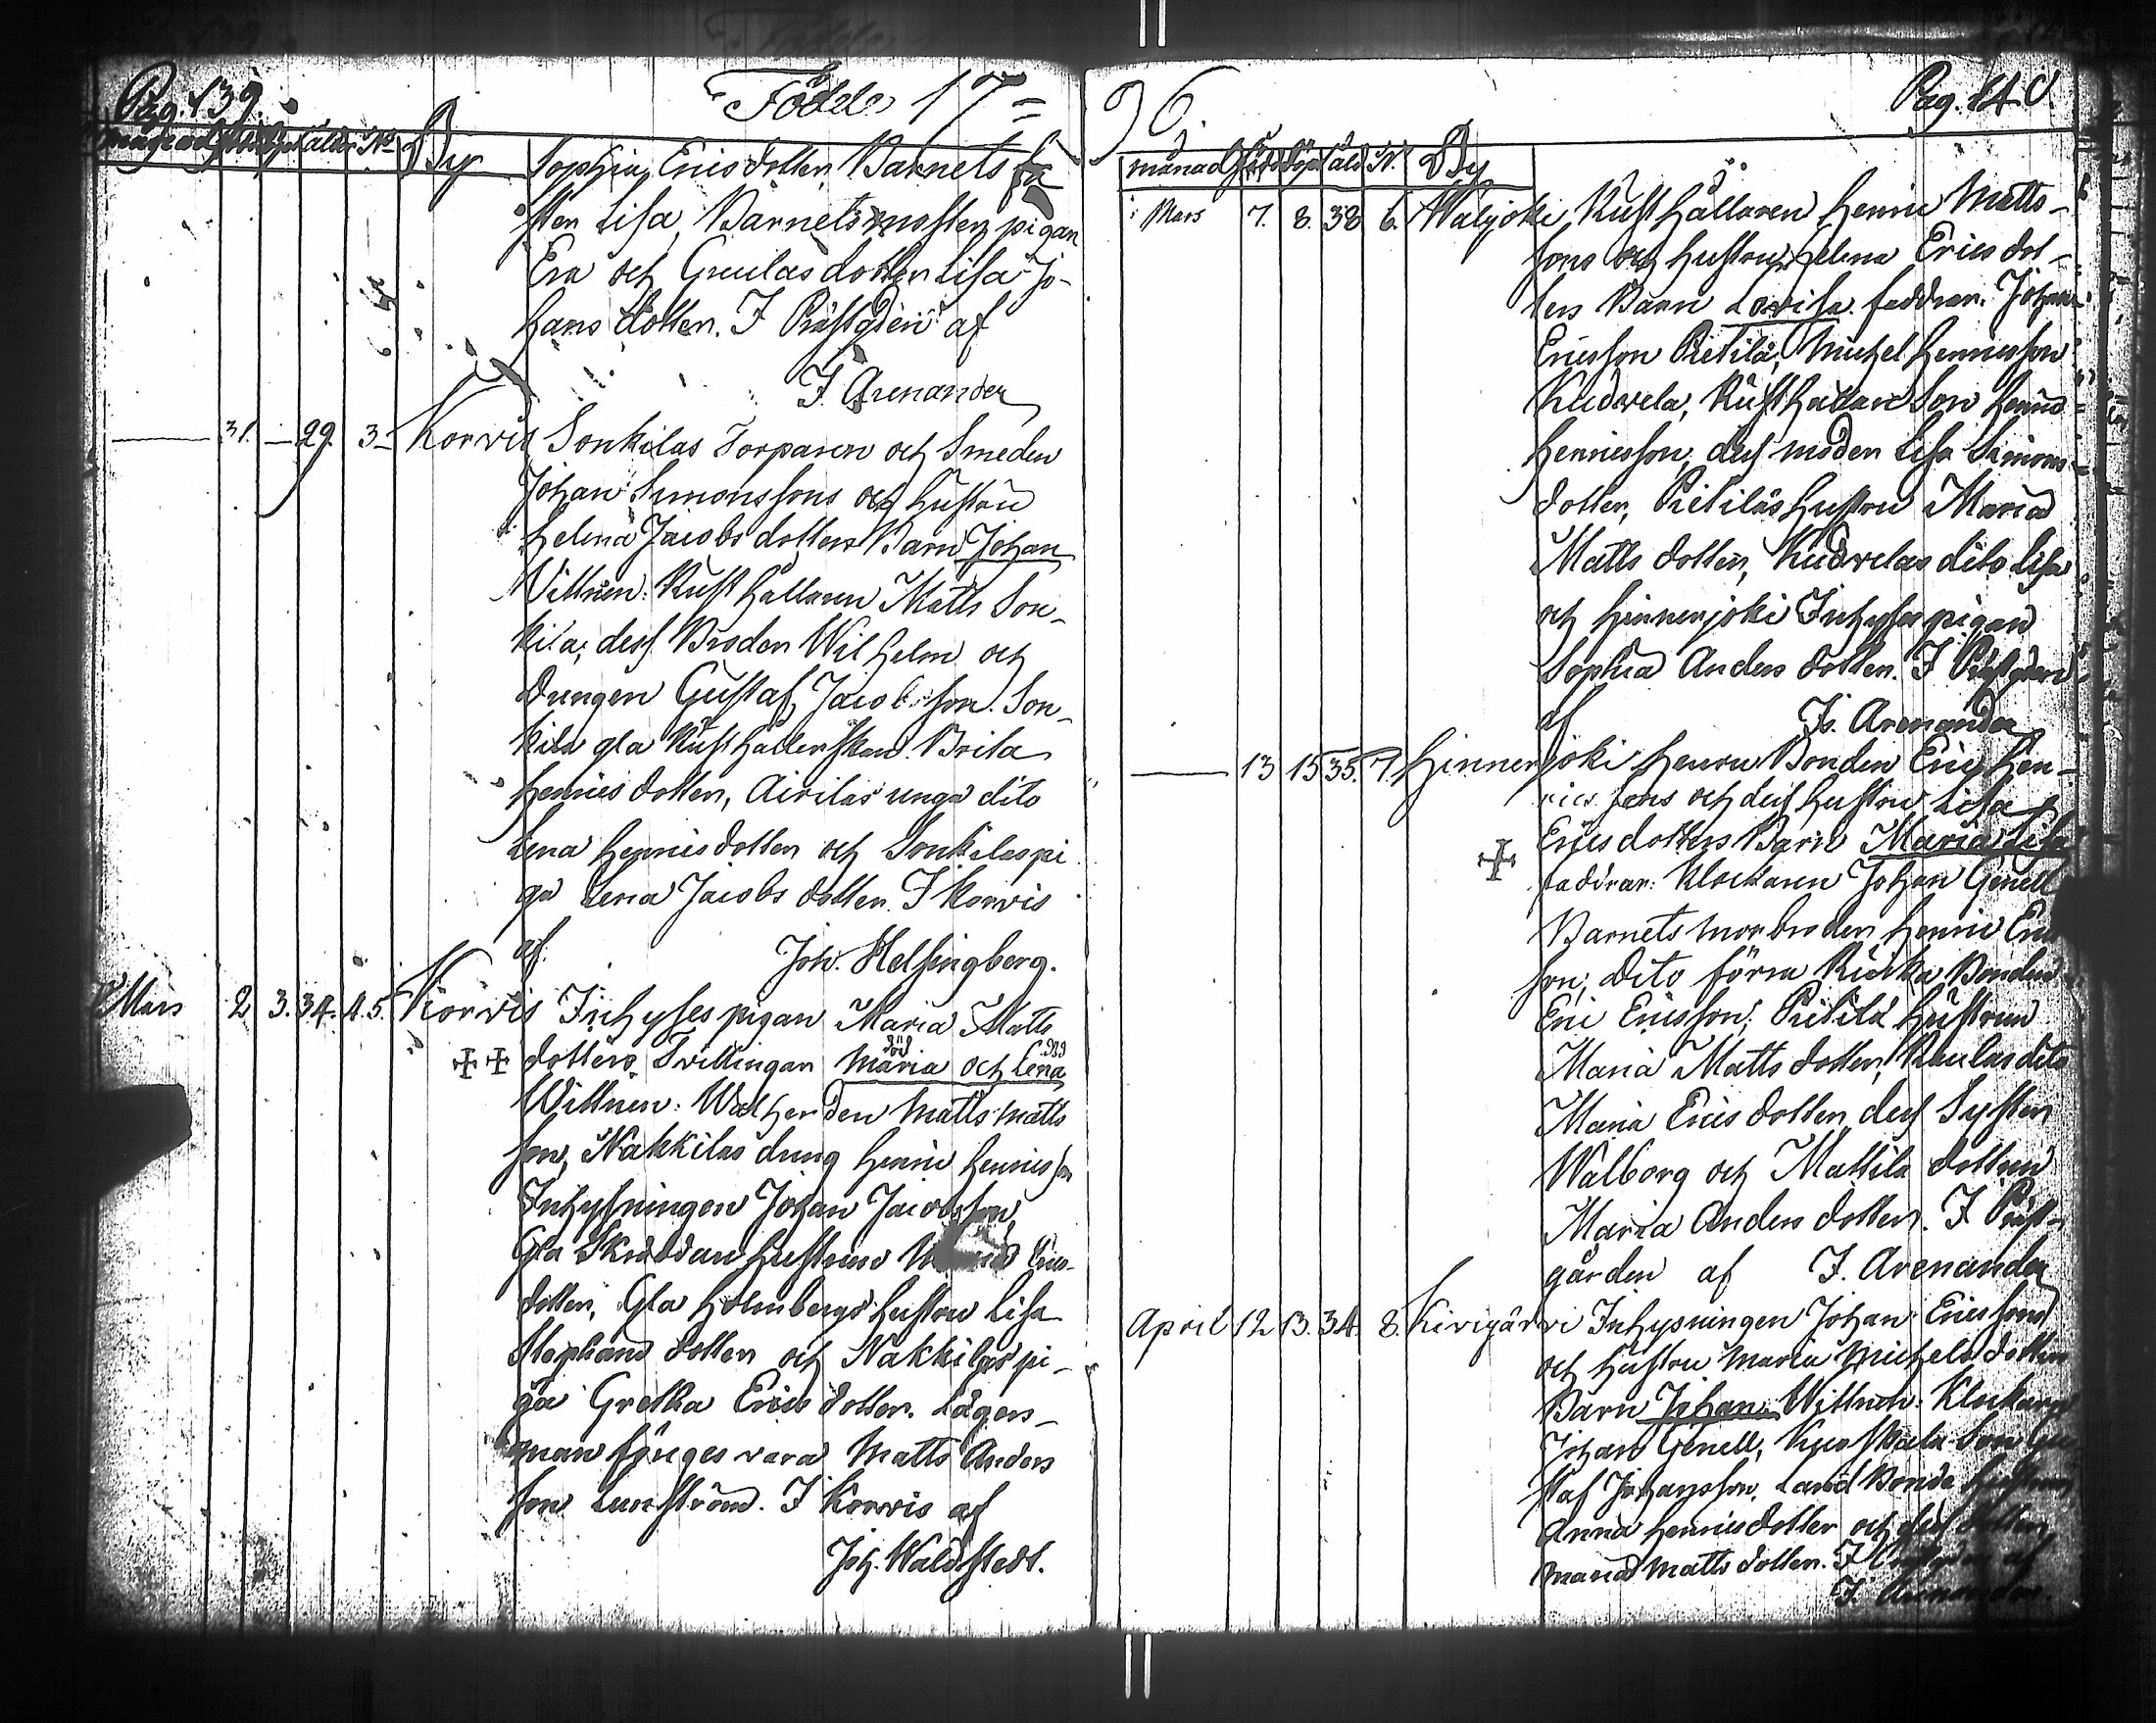 Pag. 139.
Födde 17=
månad födde döpt ålder No By
Sophia Ericsdotter Barnets fa
ster Lisa, Barnets moster, pigan
Eva och Greulas dotter Lisa Jo-
hans dotter. I Prästgården af
J. Arenander
31. — 29. 3 Korvis Sonkilas Torparen och Smeden
Johan Simonssons och hustru
Helena Jacobs dotters Barn Johan
Vittnen: Rusthållaren Matts Son-
kila, dess Broder Wilhelm och
drengen Gustaf Jacobsson. Son-
kila gla Rusthållerskan Brita
Henricsdotter, Airilas unga dito
Lena Henricsdotter och Sonkilas pi
ga Lena Jacobs dotter. I Korvis
af Joh. Helsingberg.
Mars 2 3. 34. 4. 5. Korvis Inhyses pigan Maria Matts
dotters Tvillingar Maria och Lena
död död
Wittnen: Matts Matts
son, Nakkilas dreng Henric Henricsson
Inhysningen Johan Jacobsson,
Gla Skräddar hustrun Erics-
dotter, Gla Holmbergs hustru Lisa
Stephans dotter och Nakkilas pi-
ga Gretha Erics dotter. Lägers-
man vara Matts Anders
son Lunström. I Korvis af
Joh. Waldstedt.
96.
Pag. 140
månad född döpt åld N. By
Mars 7. 8. 38 6. Waljoki Rusthållaren Henric Matts-
sons och hustru Helena Erics dot-
ters Barn Lovisa. faddrar. Johan
Ericsson Pietilä, Michel Henricsson
Kudvela, Rusthållare Son Henric
Henricsson, dess moder Lisa Simons-
dotter, Pietiläs hustru Maria
Matts dotter, Kudvelas dito Lisa
och Hinnerjoki Inhyses pigan
Sophia Anders dotter. I Prästgården
af J. Arenander
— 13 15 35. 7. Hinnerjoki Bonden Eric Hen-
rics sons och dess hustru Lisa
Ericsdotters Barn Maria Lisa
faddrar: Klockaren Johan Genell
Barnets morbroder Henric Eric
son, dito förra Bonden
Eric Ericsson, Pietilä hustrun
Maria Matts dotter, dito
Maria Erics dotter, dess Syster
Walborg och Mattila dottren
Maria Anders dotter. I Präst-
gården af J. Arenander
April 12 13. 34. 8. Kirijärvi Inhysningen Johan Ericssons
och hustru Maria Michels dotters
Barn Johan Wittnen: Klockaren
Johan Genell, Son Gu
staf Johansson, Land Bonde hustrun
Anna Henricsdotter och dess dotter
Maria Matts dotter. I af
J. Arenander.